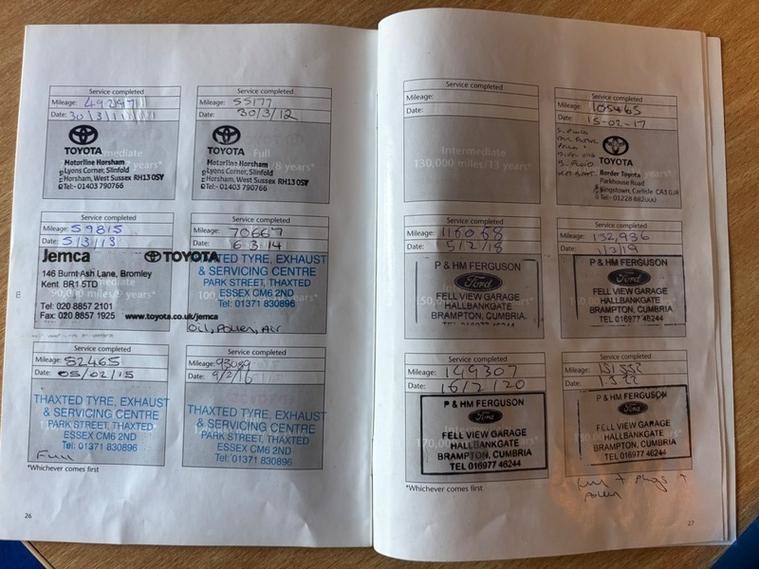 Service completed
Mileage: 49297
Date: 30/3/11
TOYOTA
Motorline Horsham
Lyons Corner, Slinfold
Horsham, West Sussex RH13 0SY
Tel:- 01403 790766
Service completed
Mileage: 55177
Date: 30/3/12
Full
TOYOTA
Motorline Horsham
Lyons Corner, Slinfold
Horsham, West Sussex RH13 0SY
Tel:- 01403 790766
Service completed
Mileage: 59815
Date: 5/3/13
Jemca TOYOTA
146 Burnt Ash Lane, Bromley
Kent BR1 5TD
Tel: 020 8857 2101
Fax: 020 8857 1925 www.toyota.co.uk/jemca
Service completed
Mileage: 70667
Date: 6.3.14
THAXTED TYRE, EXHAUST
& SERVICING CENTRE
PARK STREET, THAXTED
ESSEX CM6 2ND
Tel: 01371 830896
Oil, Pollen, Air
Service completed
Mileage: 82465
Date: 05/02/15
THAXTED TYRE, EXHAUST
& SERVICING CENTRE
PARK STREET, THAXTED
ESSEX CM6 2ND
Tel: 01371 830896
Full
Service completed
Mileage: 93089
Date: 9/2/16
THAXTED TYRE, EXHAUST
& SERVICING CENTRE
PARK STREET, THAXTED
ESSEX CM6 2ND
Tel: 01371 830896
*Whichever comes first
26
Service completed
Mileage:
Date:
Intermediate
130,000 miles/13 years*
Service completed
Mileage: 105465
Date: 15-02-17
TOYOTA
Border Toyota
Parkhouse Road
Kingstown, Carlisle CA3 0JR
Tel:- 01228
Service completed
Mileage: 116068
Date: 5/2/18
P & HM FERGUSON
Ford
FELL VIEW GARAGE
HALLBANKGATE
BRAMPTON, CUMBRIA.
Service completed
Mileage: 132,936
Date: 1/3/19
P & HM FERGUSON
Ford
FELL VIEW GARAGE
HALLBANKGATE
BRAMPTON, CUMBRIA
TEL 016977 46244
Service completed
Mileage: 149307
Date: 16/2/20
P & HM FERGUSON
Ford
FELL VIEW GARAGE
HALLBANKGATE
BRAMPTON, CUMBRIA
TEL 016977 46244
Service completed
Mileage:
Date:
P & HM FERGUSON
Ford
FELL VIEW GARAGE
HALLBANKGATE
BRAMPTON, CUMBRIA
TEL 016977 46244
+ Plugs
Pollen
*Whichever comes first
27